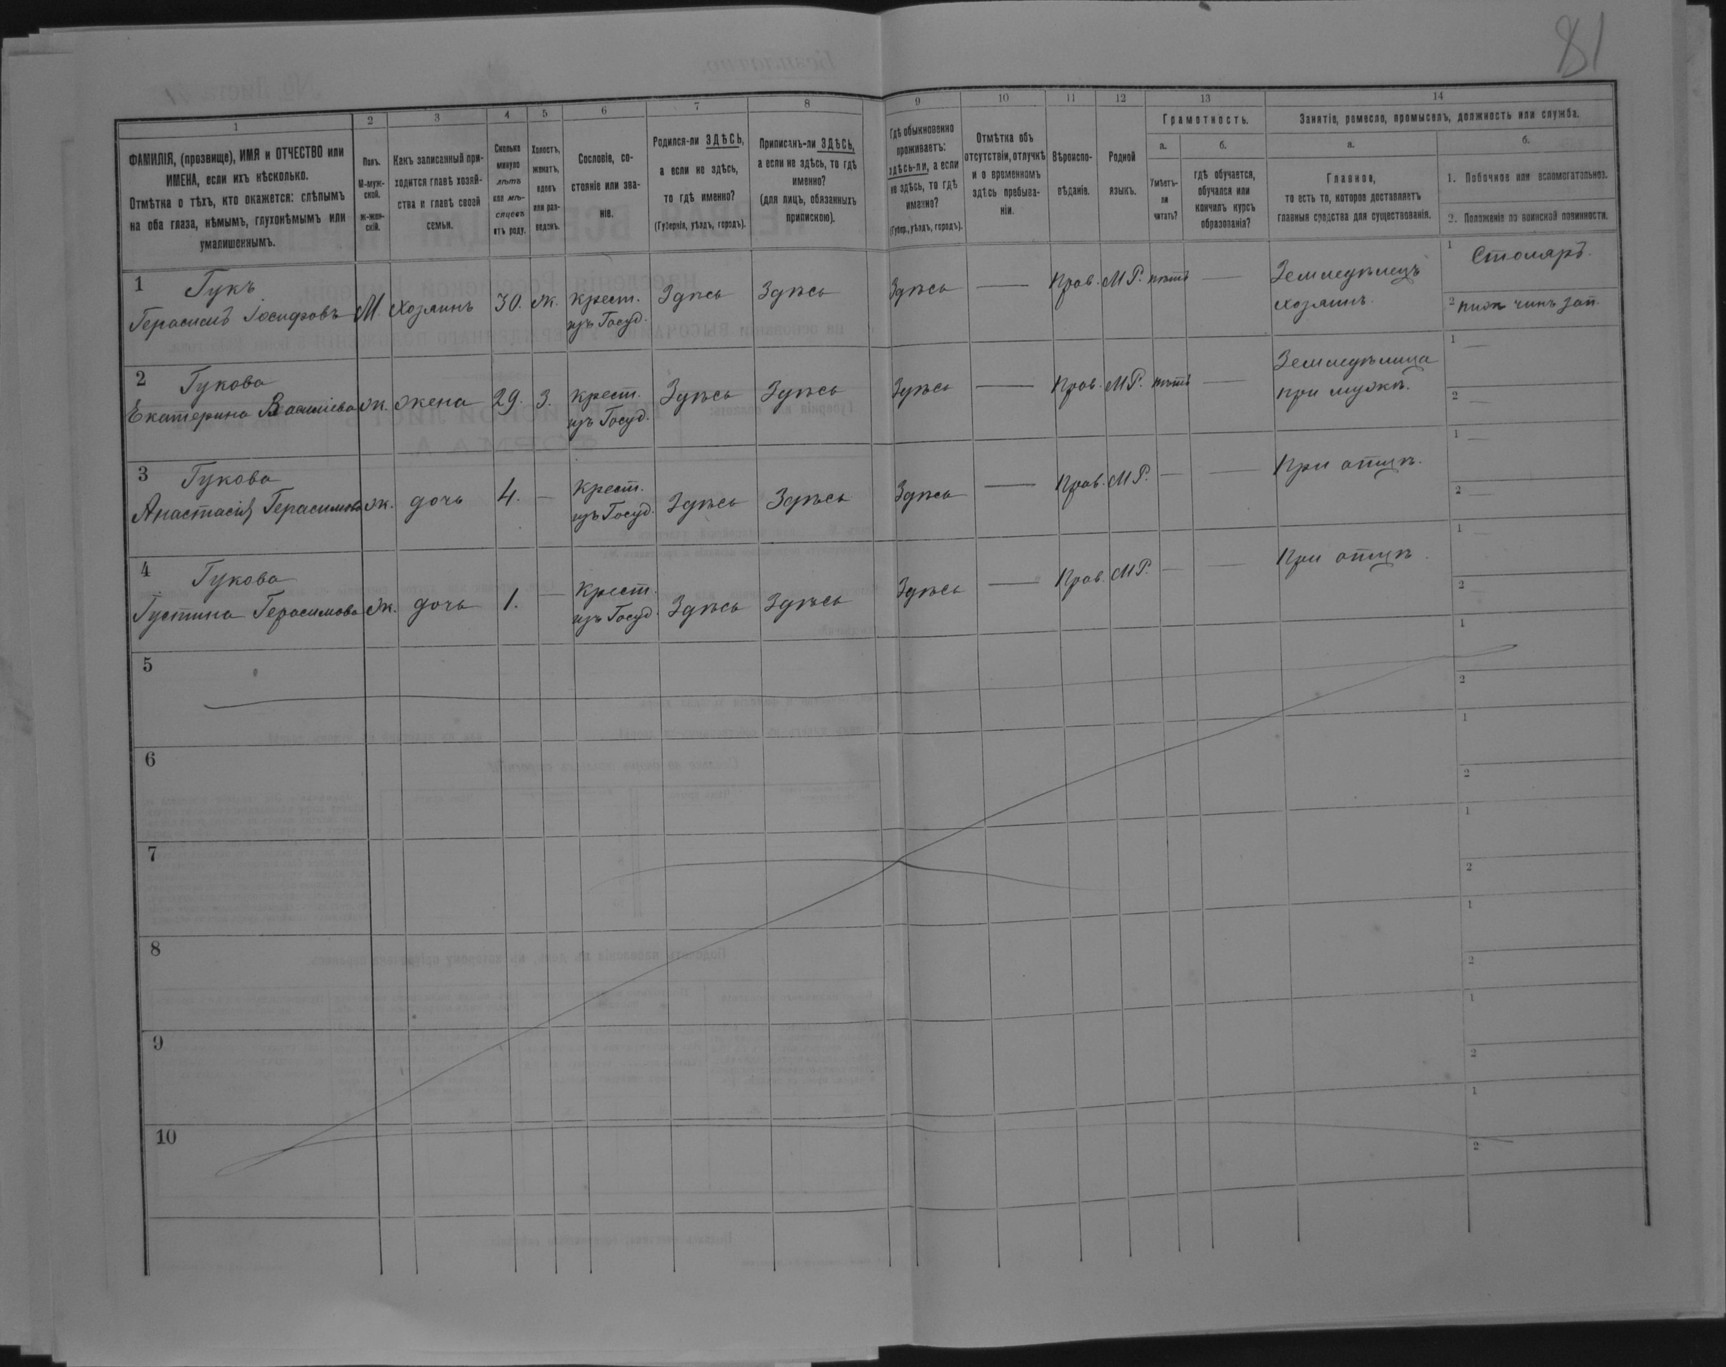 81
1
2
3
4
5
6
7
8
9
10
11
12
13
14
ФАМИЛІЯ, (прозвище), ИМЯ и ОТЧЕСТВО или
ИМЕНА, если ихъ нѣсколько.
Отмѣтка о тѣхъ, кто окажется: слѣпымъ
на оба глаза, нѣмымъ, глухонѣмымъ или
умалишеннымъ.
Полъ.
М-муж-
ской.
ж-жен-
скій.
Какъ записанный при-
ходится главѣ хозяй-
ства и главѣ своей
семьи.
Сколько
минуло
лѣтъ
или мѣ-
сяцевъ
отъ роду.
Холостъ,
женатъ,
вдовъ
или раз-
веденъ.
Сословіе, со-
стояніе или зва-
ніе.
Родился-ли ЗДѢСЬ,
а если не здѣсь,
то гдѣ именно?
(Губернія, уѣздъ, городъ).
Приписанъ-ли ЗДѢСЬ,
а если не здѣсь, то гдѣ
именно?
(для лицъ, обязанныхъ
припискою).
Гдѣ обыкновенно
проживаетъ:
здѣсь-ли, а если
не здѣсь, то гдѣ
именно?
(Губер., уѣздъ, городъ).
Отмѣтка объ
отсутствіи, отлучкѣ
и о временномъ
здѣсь пребыва-
ніи.
Вѣроиспо-
вѣданіе.
Родной
языкъ.
Грамотность.
а.
Умѣетъ-
ли
читать?
б.
гдѣ обучается,
обучался или
кончилъ курсъ
образованія?
Занятіе, ремесло, промыселъ, должность или служба.
а.
Главное,
то есть то, которое доставляетъ
главныя средства для существованія.
б.
1. Побочное или вспомогательное.
2. Положеніе по воинской повинности.
1 Гукъ
Герасимъ Іосифовъ М. Хозяинъ 30. ж. Крест. изъ Госуд. Здѣсь Здѣсь Здѣсь — Прав. МР. нѣтъ — Земледѣлецъ хозяинъ. 1 Столяръ.
2 чинъ зап.
2 Гукова
Екатерина ж. жена 29. З. Крест. изъ Госуд. Здѣсь Здѣсь Здѣсь — Прав. МР. нѣтъ — Земледѣлица при мужѣ. 1 —
2 —
3 Гукова
Анастасія Герасимова ж. дочь 4. — Крест. изъ Госуд. Здѣсь Здѣсь Здѣсь — Прав. МР. — — При отцѣ. 1 —
2 —
4 Гукова
Густина Герасимова ж. дочь 1. — Крест. изъ Госуд. Здѣсь Здѣсь Здѣсь — Прав. МР. — — При отцѣ. 1
2
5 1
2
6 1
2
7 1
2
8 1
2
9 1
2
10 1
2